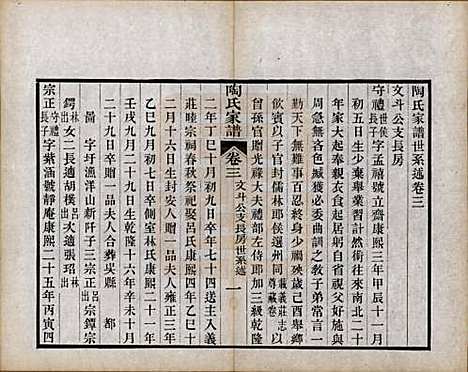 陶氏家譜世系述卷三
文斗公支長房
守禮世侯長子字孟禧號立齋康熙三年甲辰十一月
初五日生少棄舉業習計然術往來南北二十
年家大起奉親衣食起居躬自省視父好施與
周急睦婣多委曲訓之教子弟常言一
勤天下無難事百忍終身少禍殃歲己酉舉鄉
飲賓以子官封儒林郎侯選州同載義莊志以
曾孫官贈光祿大夫禮部左侍郎加三級乾隆
陶氏家譜
卷三
文斗公支長房世系述
一
二年丁巳十月初九日卒年七十四送主入載
睦宗祠春秋祭祀娶呂氏康熙三年
二月十六日生封安人贈夫人雍正三年
乙巳九月初七日卒側室林氏康熙二十一年
壬戌九月二十九日生乾隆十六年辛未十月
二十九日卒贈一品夫人合葬吳縣 都
圖 字圩漁洋山新阡子三宗正呂出宗鐔宗
鍔林出女二長適胡樸呂出次適張玿林出
宗正守禮長子字紫涵號靜庵康熙二十五年丙寅四